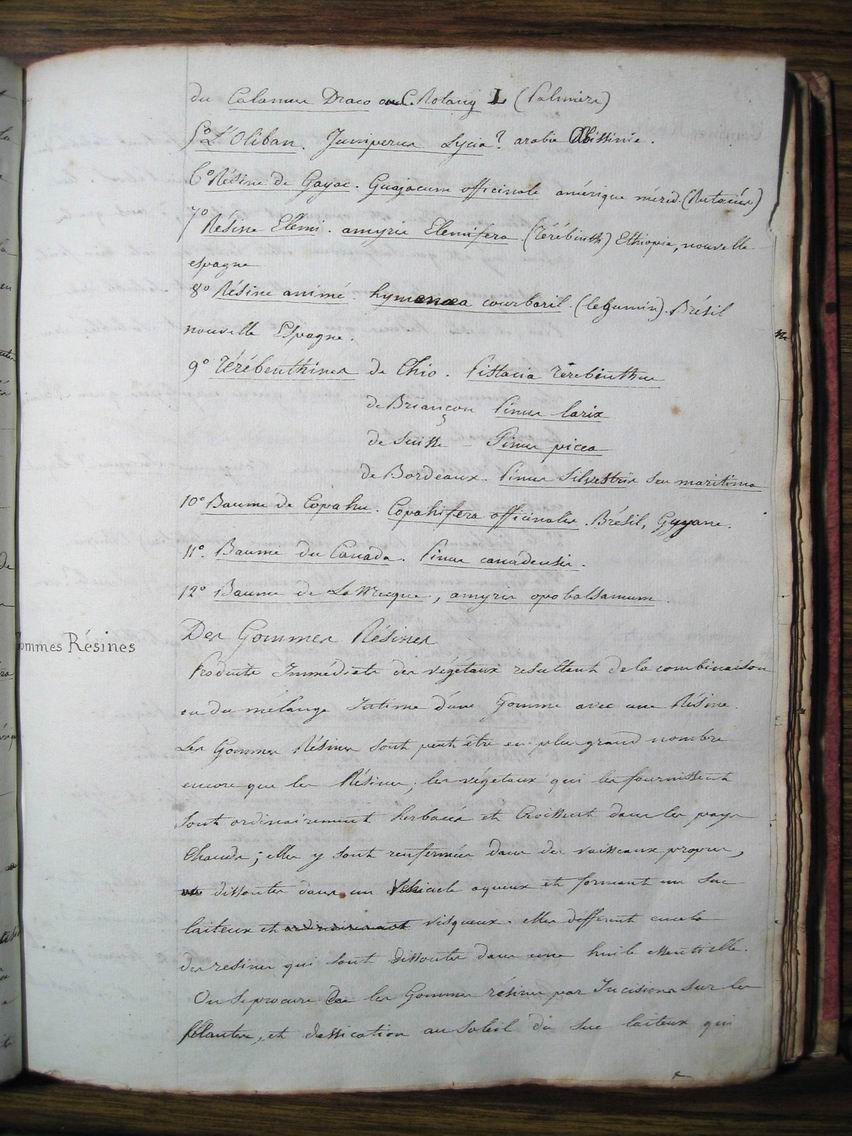 du Calamus Draco ou C. Rotang L (Palmiers)
5° L'Oliban. Juniperus Lycia? arabie Abissinie.
6° Résine de Gayac. Guajacum officinale amérique mérid. (Rutacées)
7° Résine Elemi. amyris Elemifera (Térébinth) Ethiopie, nouvelle
espagne
8° Résine animé. hymenaea courbaril. (legumin). Brésil
nouvelle Espagne.
9° Térébenthines de Chio. Pistacia Terebenthus
de Briançon Pinus larix
de Suisse – Pinus picea
de Bordeaux. Pinus Silvestris seu maritima
10° Baume de Copahu. Copahifera officinales. Brésil, Guyane.
11°. Baume du Canada. Pinus canadensis.
12° Baume de La Mecque, amyris opobalsamum.
Gommes Résines
Des Gommes Résines
Produits Immédiats des végétaux resultent de la combinaison
ou du mélange Intime d'une Gomme avec une Résine.
Les Gommes Résines sont peut être en plus grand nombre
encore que les Résines; les végétaux qui les fournissent
sont ordinairement herbacés et Croissent dans les pays
Chauds; elles y sont renfermées dans des vaisseaux propres,
dissoutes dans un Véhicule aqueux et formant un Suc
laiteux et ordinairement visqueux. elles different en cela
des resines qui sont dissoutes dans une huile essentielle.
On Se procure les Gommes résines par Incisions sur les
plantes, et dessication au Soleil du Suc laiteux qui